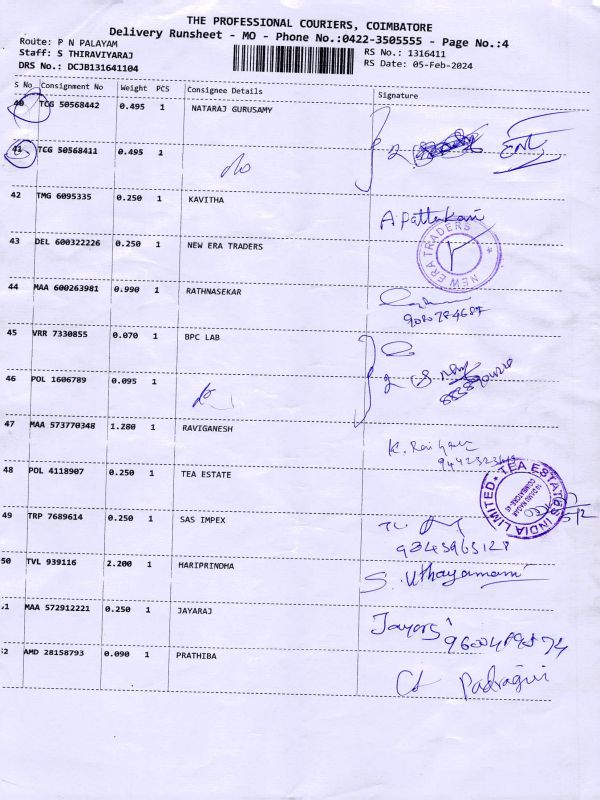 THE PROFESSIONAL COURIERS, COIMBATORE
Delivery Runsheet - MO - Phone No.:0422-3505555 - Page No.:4
Route: P N PALAYAM
Staff: S THIRAVIYARAJ
RS No.: 1316411
DRS No.: DCJB131641104
RS Date: 05-Feb-2024
S No. Consignment No Weight PCS Consignee Details Signature
40 TCG 50568442 0.495 1 NATARAJ GURUSAMY
41 TCG 50568411 0.495 1
42 TMG 6095335 0.250 1 KAVITHA
43 DEL 600322226 0.250 1 NEW ERA TRADERS
NEW ERA TRADERS
44 MAA 600263981 0.990 1 RATHNASEKAR
45 VRR 7330855 0.070 1 BPC LAB
46 POL 1606789 0.095 1
47 MAA 573770348 1.280 1 RAVIGANESH
48 POL 4118907 0.250 1 TEA ESTATE
TEA ESTATES INDIA LIMITED
49 TRP 7689614 0.250 1 SAS IMPEX
50 TVL 939116 2.200 1 HARIPRINDHA
S. Uthayamani
MAA 572912221 0.250 1 JAYARAJ
AMD 28158793 0.090 1 PRATHIBA